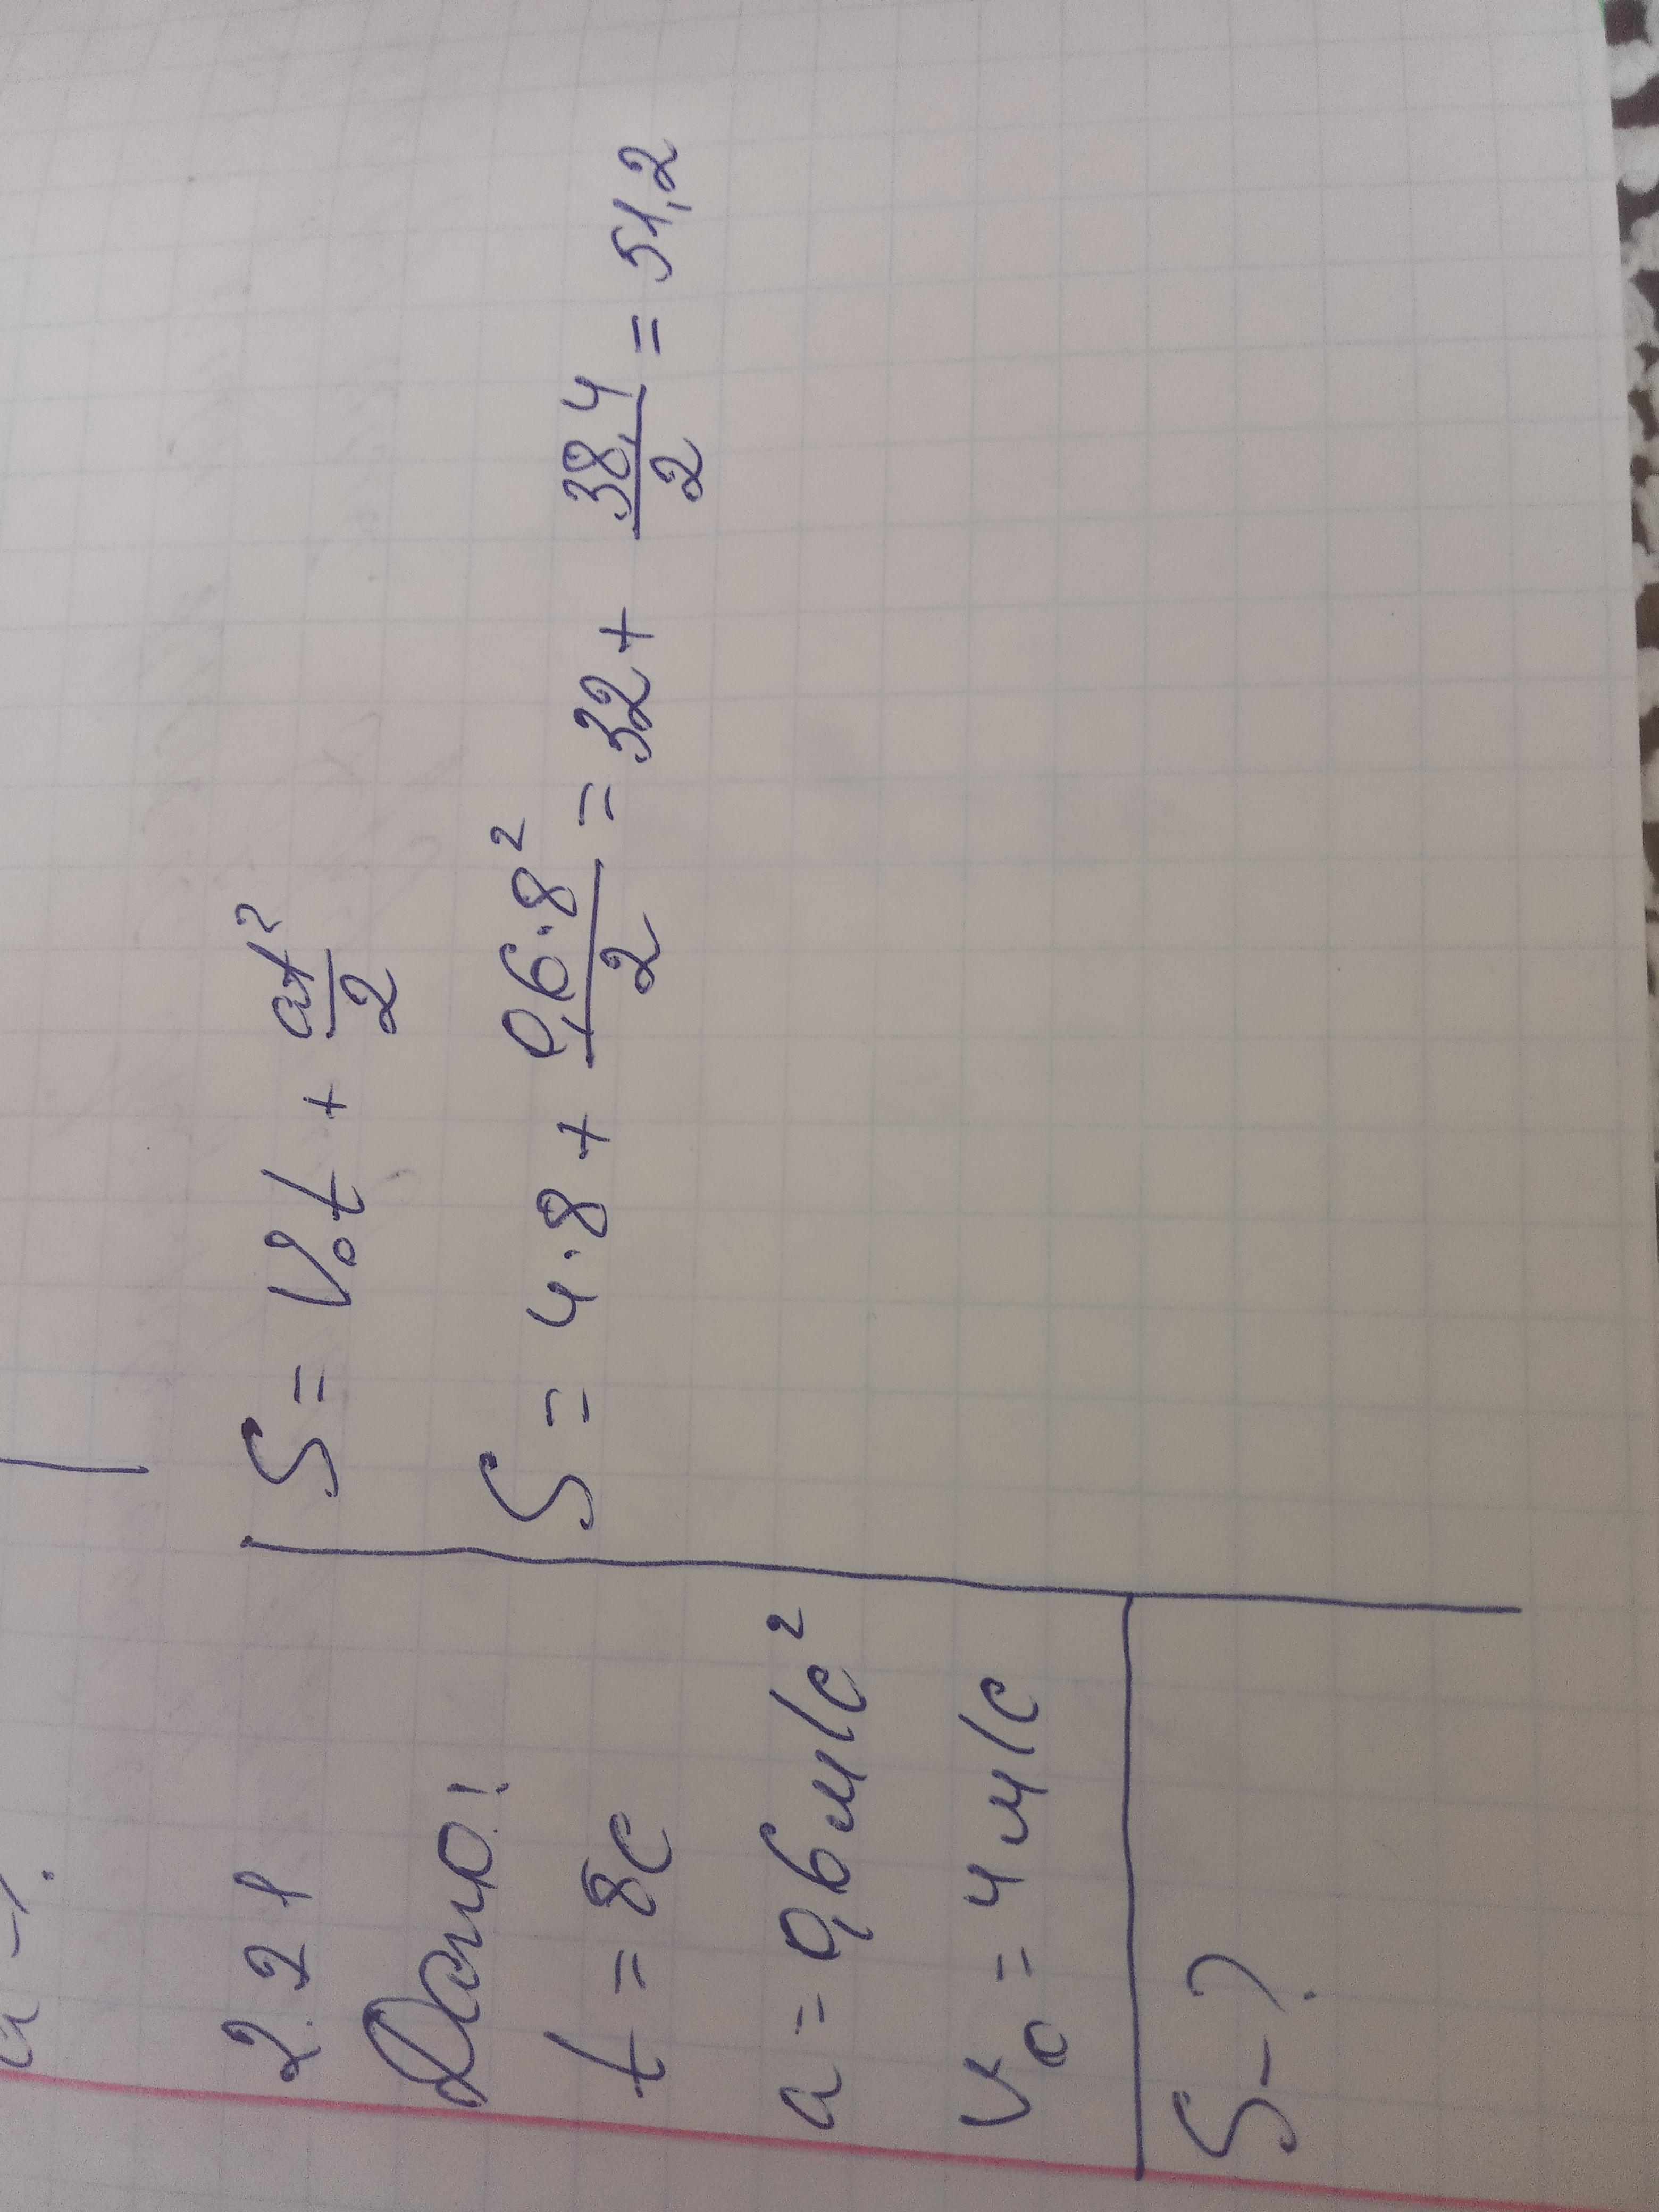 2.21
Дано:
t = 8c
a = 0,6 м/с²
V₀ = 4 м/с
S-?
S = V₀t + at²/2
S = 4·8 + 0,6·8²/2 = 32 + 38,4/2 = 51,2